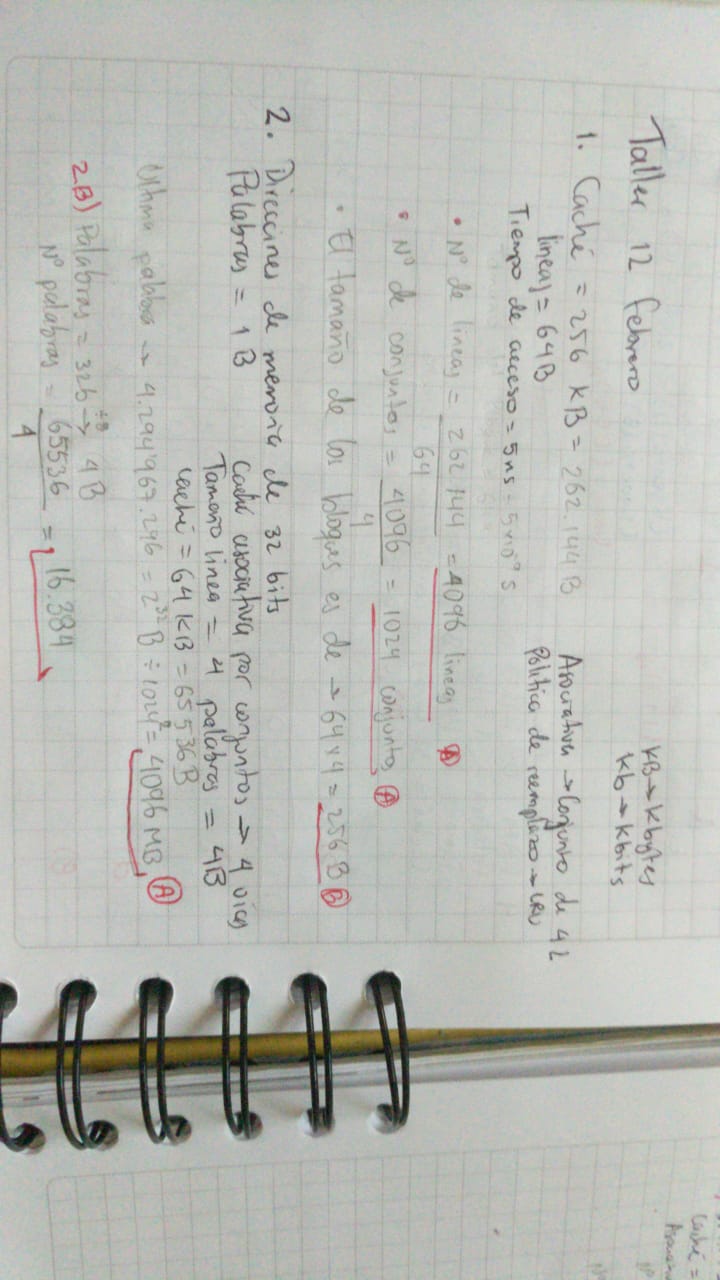 Taller 12 febrero
KB → Kbytes
Kb → Kbits
1. Caché = 256 KB = 262.144 B
líneas = 64B
Tiempo de acceso = 5ns = 5x10⁻⁹ s
Asociativa → Conjunto de 4L
Política de reemplazo → LRU
• Nº de líneas = 262.144 / 64 = 4096 líneas A
• Nº de conjuntos = 4096 / 4 = 1024 conjuntos A
• El tamaño de los bloques es de → 64x4 = 256B B
2. Direcciones de memoria de 32 bits
Palabras = 1B
Caché asociativa por conjuntos → 4 vías
Tamaño línea = 4 palabras = 4B
caché = 64 KB = 65536B
Última palabra → 4.294'967.296 = 2³² B ÷ 1024² = 4096 MB A
2.B) Palabras = 32b ÷8→ 4B
Nº palabras = 65536 / 4 = 16.384
Caché =